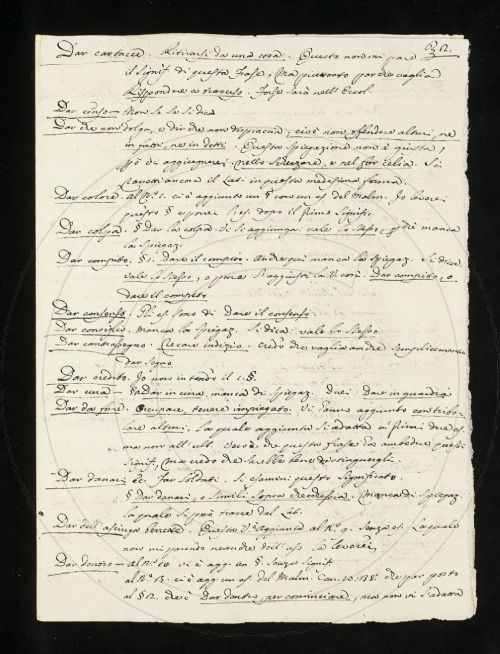 312.
Dar cartacce. Ritirarsi da una cosa. Questo non mi pare
il signif. di questa frase, Ma piuttosto par che vaglia
Rispondere a traverso. Forse sarà nell'
Dar censo — Non so se si dica
Dar che non dolga, o die che non dispiaccia, cioè non offendere altrui, ne
in fatti, ne in detti. Questa spiegazione non è giusta,
di aggiugnervi nello scherzare, o nel far celia. Si
ancora il Lat. in questa medesima forma.
Dar colore. al N.º 1. ci è aggiunto un § con un es. del Malm. Io leverei
questo § e porrei l'es. dopo il primo signific.
Dar colpa. § Dar la colpa Vi si aggiunga: vale lo stesso, manca
la spiegaz.
Dar compito. § 1. Dare il compito. Anche qui manca la spiegaz. Si dica
vale lo stesso, o pure si aggiusti la Dar compito, o
dare il compito
Dar consenso. es. sono di Dare il consenso.
Dar consiglio. manca la spiegaz. Si dica: vale lo stesso
Dar contrassegno. Recare indizio. credo che vaglia anche semplicemente
dar segno
Dar credito. Io non intendo il 1. §.
Dar cura — § Dar in cura, manca di spiegaz. Dare in guardia
Dar da fare. Occupare, tenere impiegato. Vi hanno aggiunto
altrui, la quale aggiunta si adatta ai primi due es.
ma non all'ult. questa frase ha ambedue questi
signif., Ma credo che sarebbe bene distinguergli.
Dar danari far soldati. Si esamini questo significato
§ dar danari, o simili sopra checchessia. Manca di spiegaz.
la quale si può trarre dal Lat.
Dar dell' Questo V. aggiunto al N.º 9. senza es. La quale
non mi prendo vedere dell'uso la leverei,
Dar dentro — al N.º 10. vi è agg. un §. senza signif.
al N.º 13. ci è agg. un es. del Malm. Can. 10. 138. che par posto
al § 12. che è Dar dentro per cominciare, ma non vi s'adatta